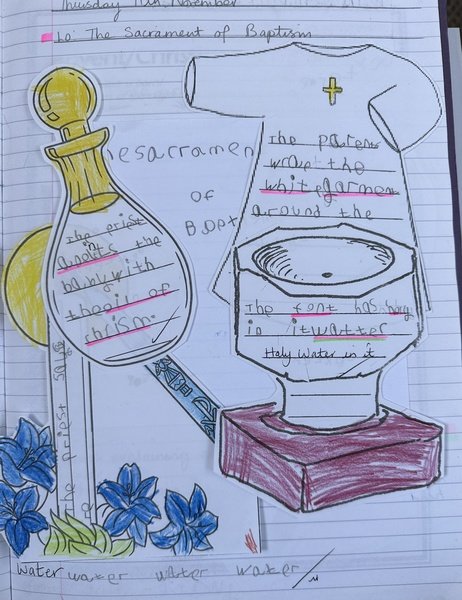 Thursday 11th November
Lo: The Sacrament of Baptism
esacramen
of
Bapt
The priest
anoits the
baby with
the oil of
chrism.
The paren
wrap the
white garmen
around the
The font has holy
in it watter
Holy Water in it
The priest says
water water water water